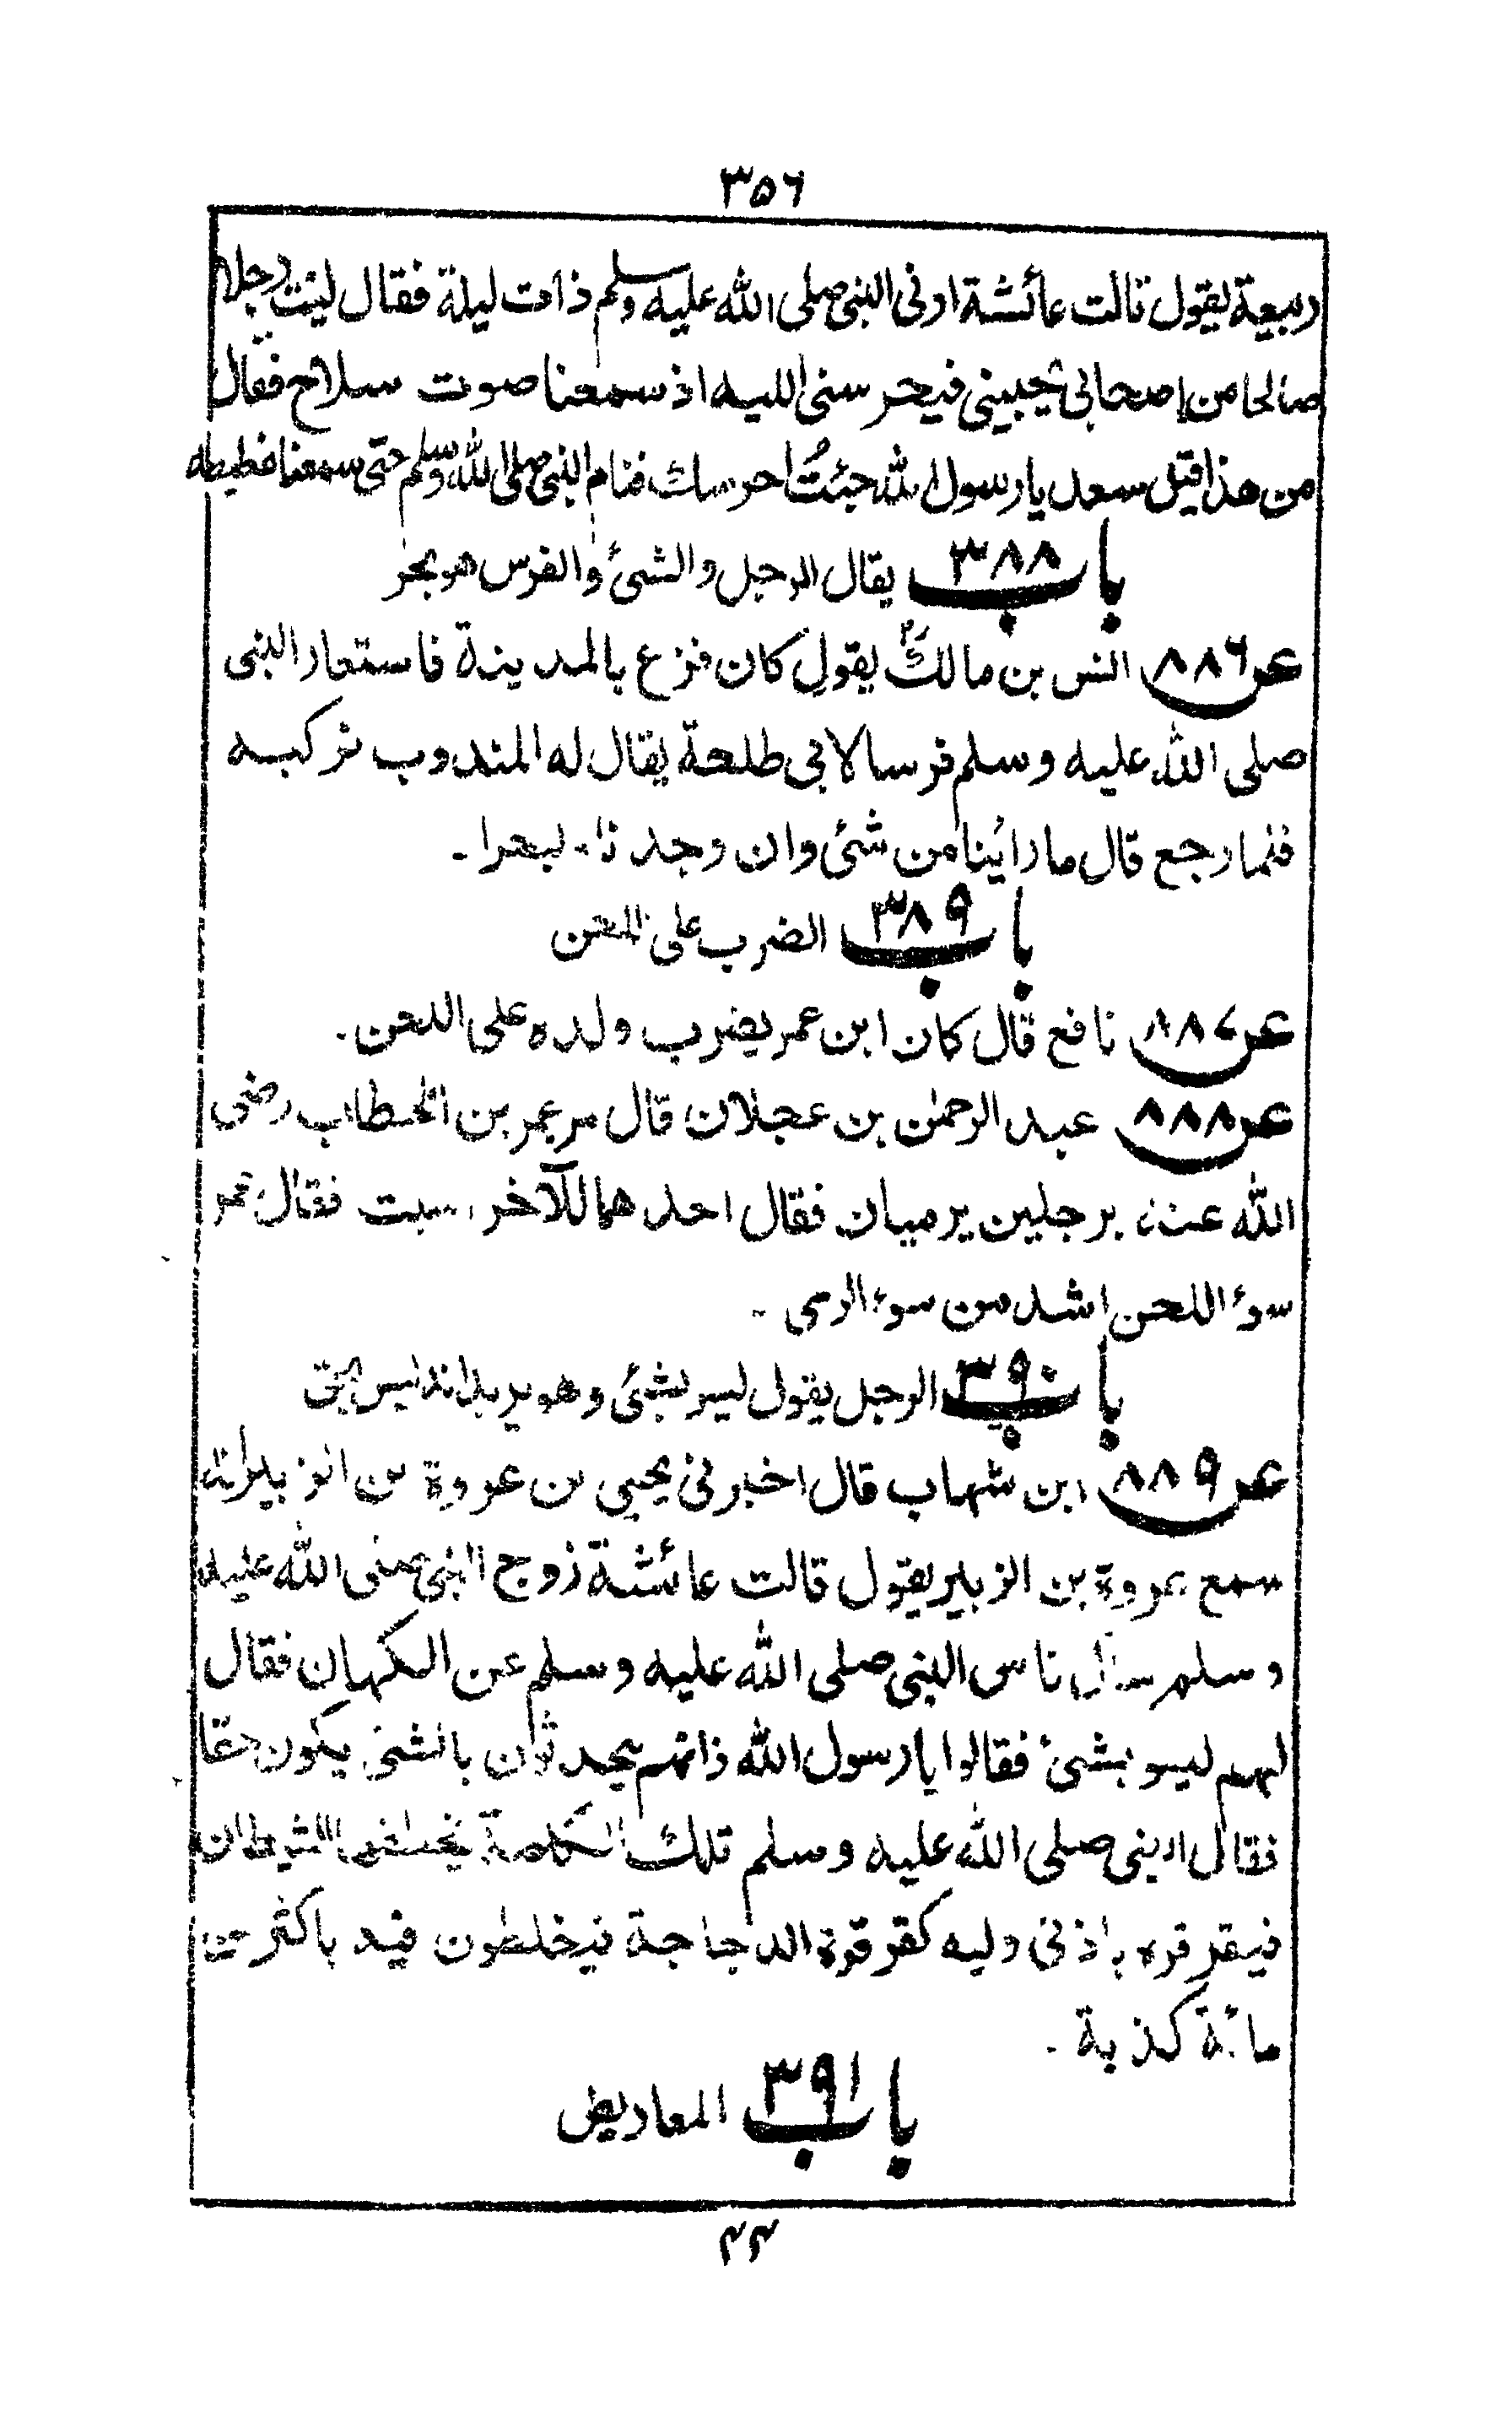 ٣٥٦
ربيعة يقول قالت عائشة ارنى النبى صلى الله عليه وسلم ذات ليلة فقال ليت رجلا
صالحا من اصحابى يجيبنى فيحرسنى الليه اذ سمعنا صوت سلاح فقال
من هذا قيل سعد يا رسول الله جئتُ احرسك فنام النبى صلى الله وسلم حتى سمعنا غطيطه
باب ٣٨٨ يقال الرجل والشئ والفرس هو بحر
عن ٨٨٦ انس بن مالكؓ يقول كان فزع بالمدينة فاستعار النبى
صلى الله عليه وسلم فرسا لابى طلحة يقال له المندوب فركبه
فلما رجع قال ما رأينا من شئ وان وجدناه لبحرا ۔
باب ٣٨٩ الضرب على اللحن
عن ٨٨٧ نافع قال كان ابن عمر يضرب ولده على اللحن ۔
عن ٨٨٨ عبد الرحمٰن بن عجلان قال مر عمر بن الخطاب رضى
الله عنه برجلين يرميان فقال احدهما للآخر اسبت فقال عمر
سوء اللحن اشد من سوء الرمى ۔
باب ٣٩٠ الرجل يقول ليس بشئ وهو يريد انه ليس بحق
عن ٨٨٩ ابن شهاب قال اخبرنى يحيى بن عروة بن الزبير انه
سمع عروة بن الزبير يقول قالت عائشة زوج النبى صلى الله عليه
وسلم سأل ناس النبى صلى الله عليه وسلم عن الكهان فقال
لهم ليسو بشئ فقالوا يا رسول الله فانهم يحدثون بالشئ يكون حقا
فقال النبى صلى الله عليه وسلم تلك الكلمة يخطفها الشيطان
فيقرقره باذنى وليه كقرقرة الدجاجة فيخلطون فيه باكثر من
مائة كذبة ۔
باب ٣٩١ المعاريض